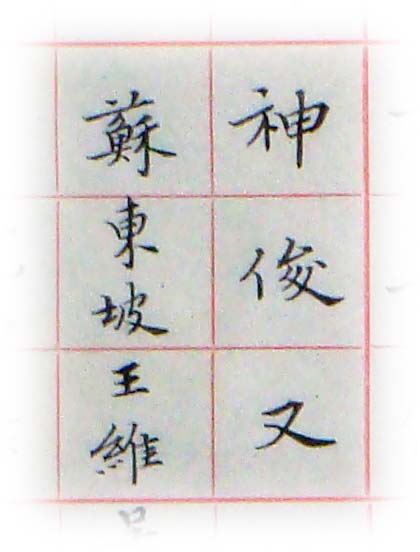 神俊又
蘇東坡王維